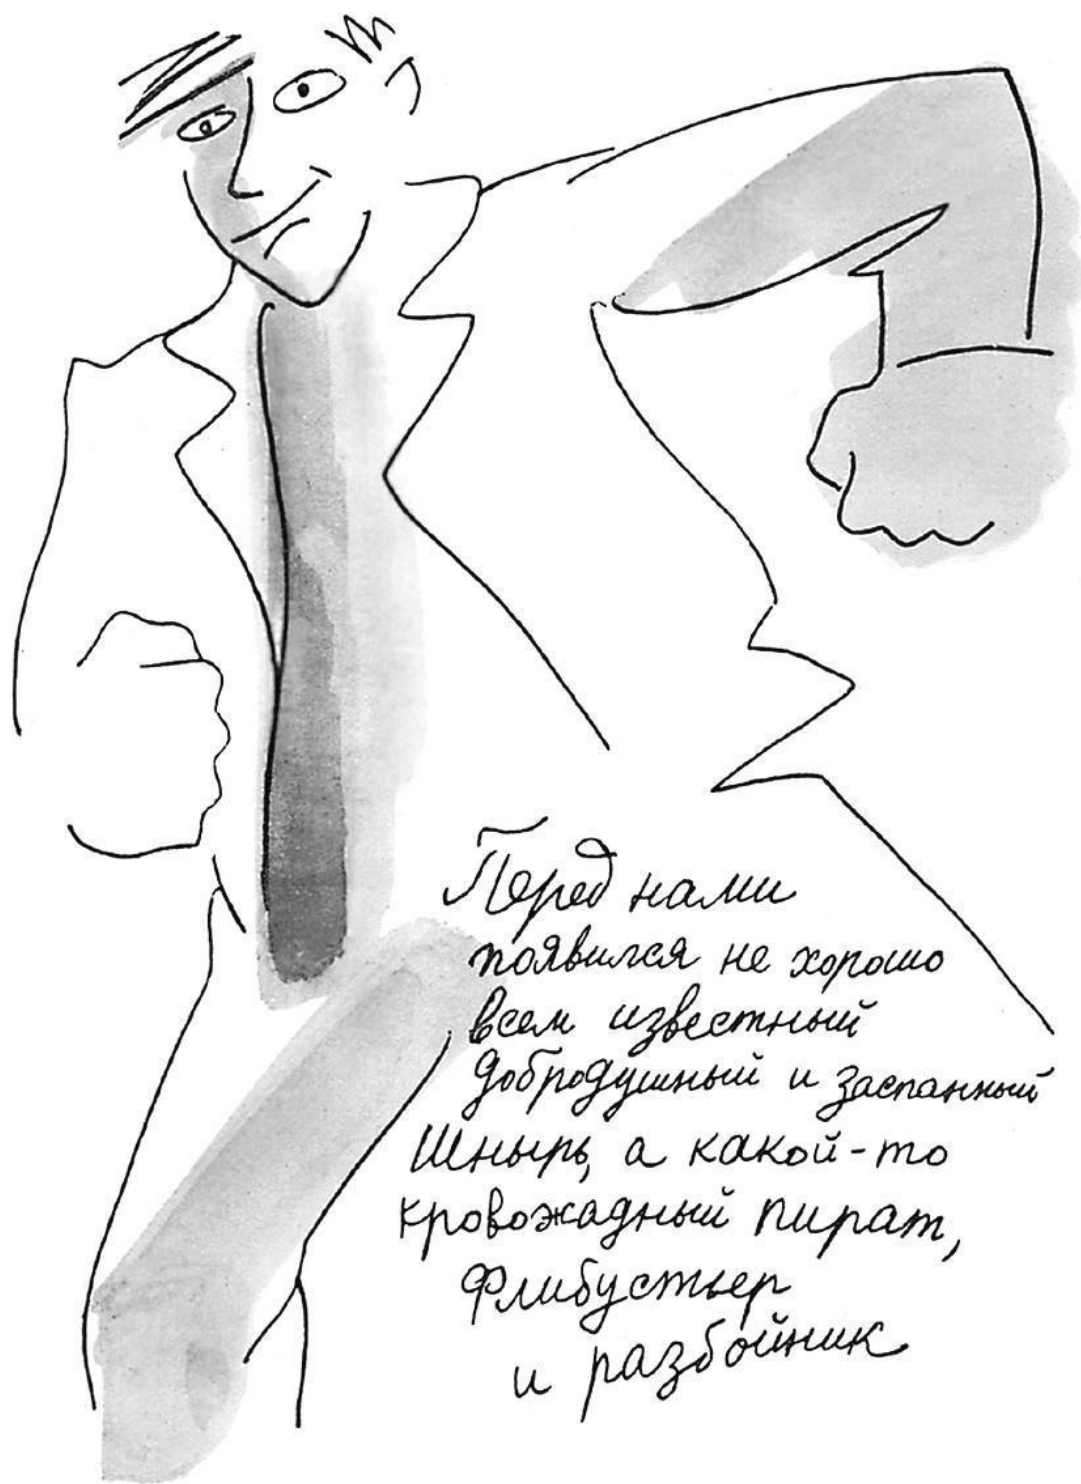 Перед нами
появился не хорошо
всем известный
добродушный и заспанный
Шнырь, а какой-то
кровожадный пират,
флибустьер
и разбойник